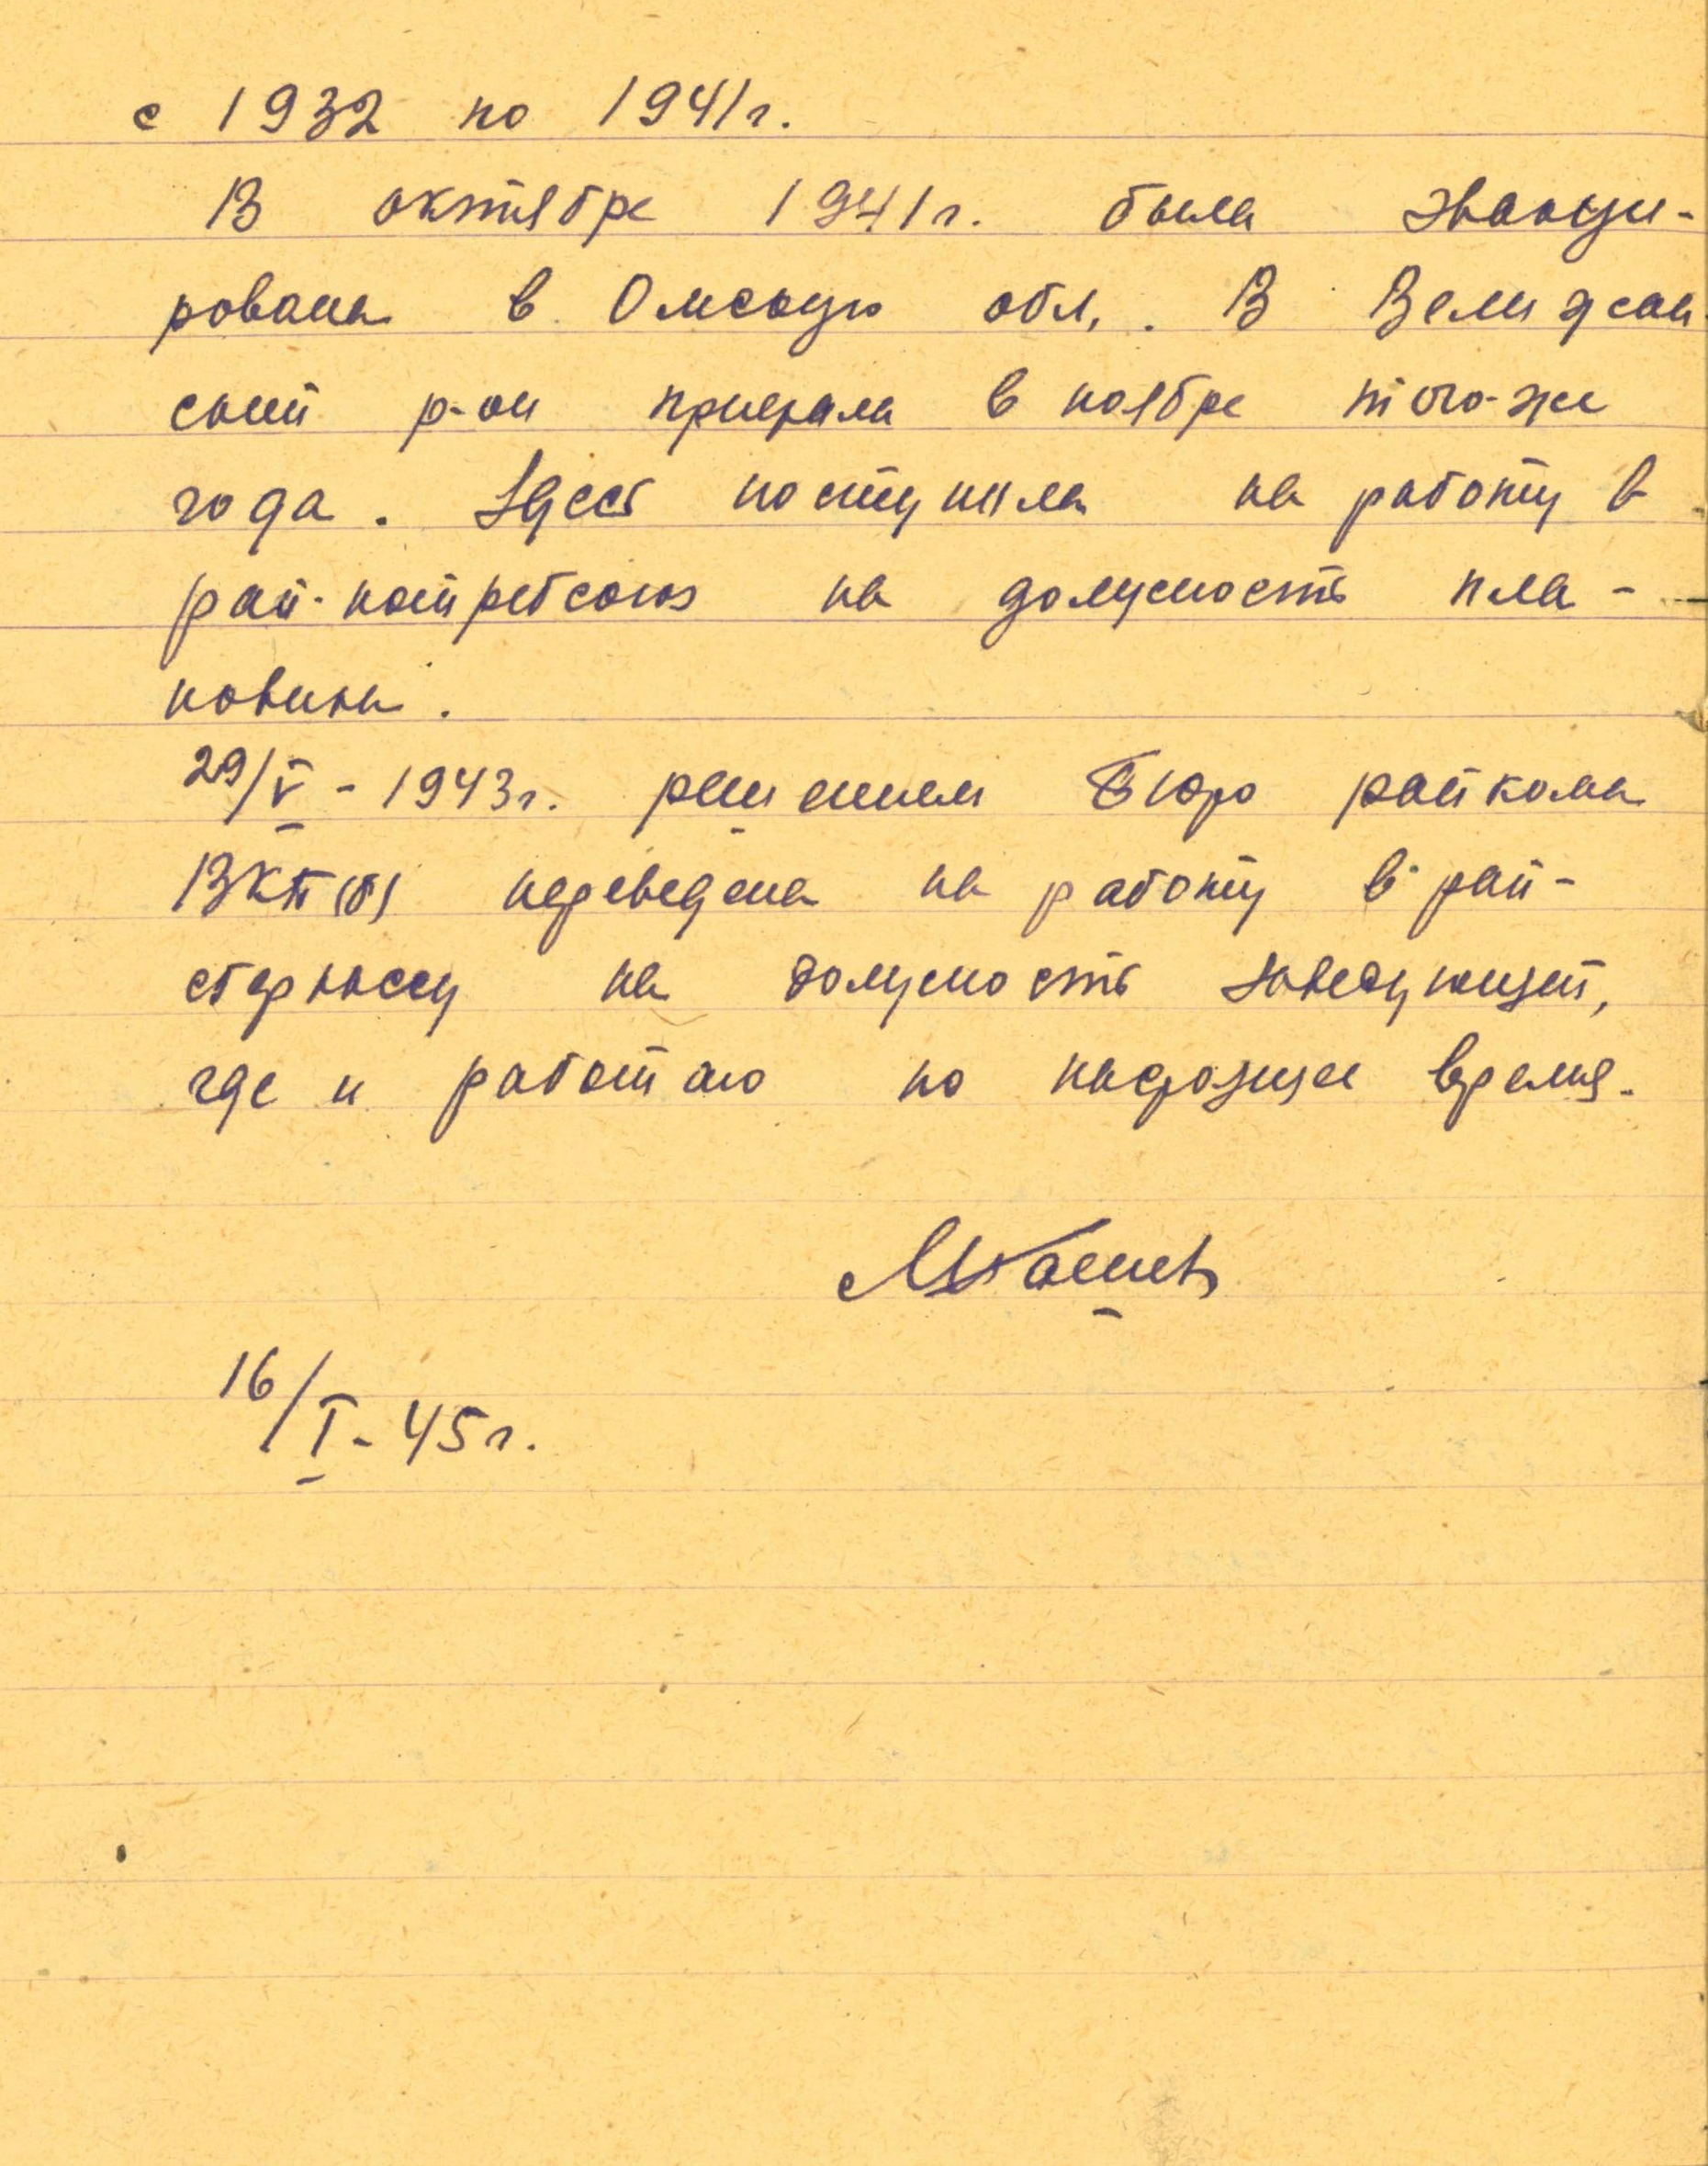 с 1932 по 1941г.
В октябре 1941г. была эвакуи-
рована в Омскую обл. . В Велижан
ский р-он приехала в ноябре того-же
года. Здесь поступила на работу в
рай-потребсоюз на должность пла-
новика.
29/V - 1943г. решением Бюро райкома
ВКП(б) переведена на работу в рай-
сберкассу на должность заведующей,
где и работаю по настоящее время.
16/I - 45г.